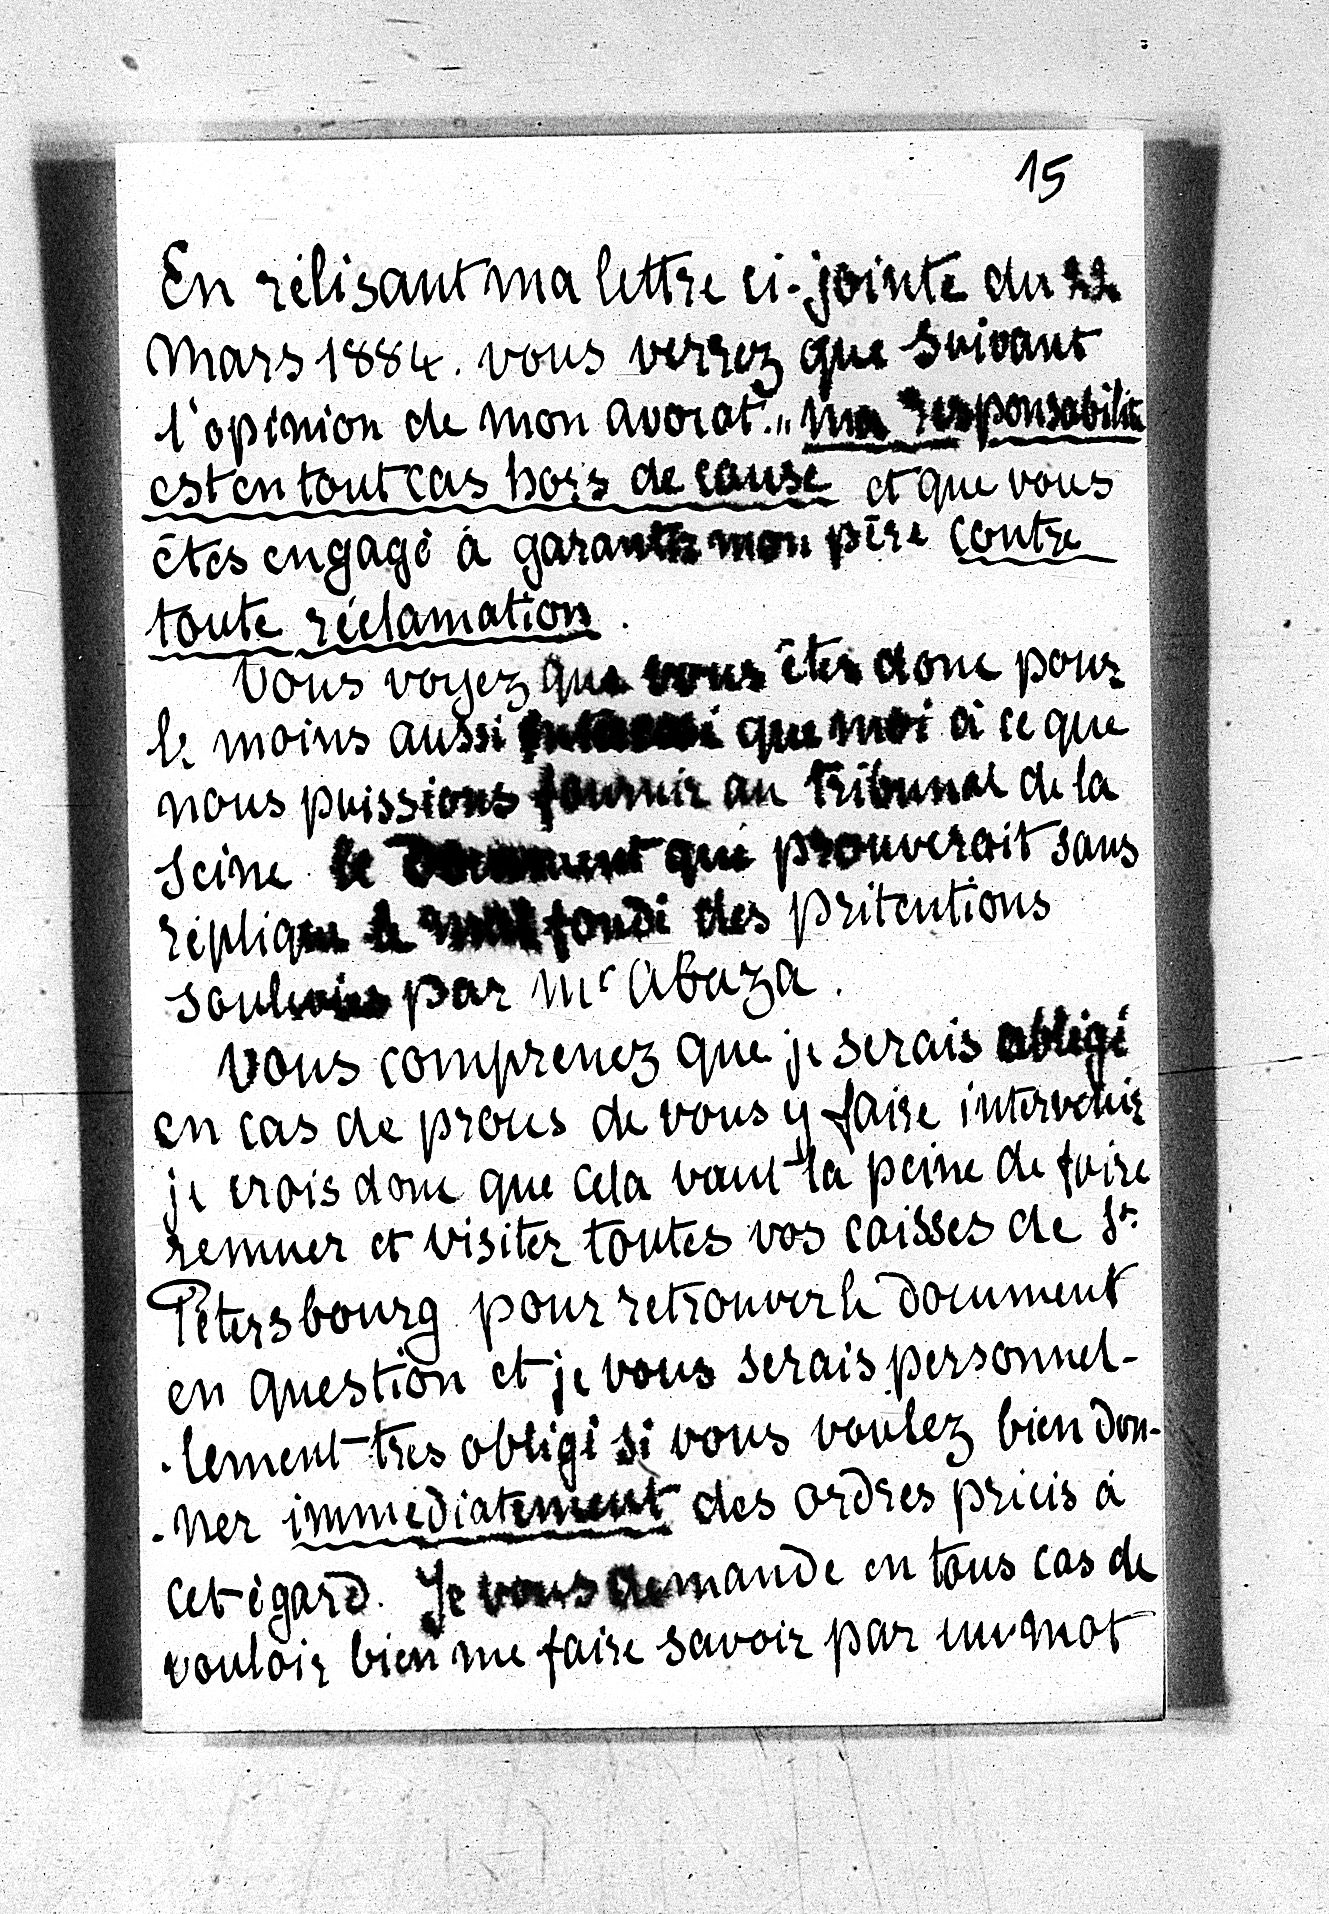 15
En rélisant ma lettre ci-jointe du 22
Mars 1884. vous verrez que suivant
l'opinion de mon avocat „ma responsabilité
est en tout cas hors de cause et que vous
êtes engagé à garantir mon père contre
toute réclamation.
Vous voyez que vous êtes donc pour
le moins aussi intéressé que moi à ce que
nous puissions fournir au Tribunal de la
Seine le document qui prouverait sans
réplique le mal fondé des prétentions
soulevées par Mr Abaza.
Vous comprenez que je serais obligé
en cas de procès de vous y faire intervenir
je crois donc que cela vaut la peine de faire
remuer et visiter toutes vos caisses de St.
Pétersbourg pour retrouver le document
en question et je vous serais personnel-
-lement très obligé si vous voulez bien don-
-ner immédiatement des ordres précis à
cet égard. Je vous demande en tous cas de
vouloir bien me faire savoir par un mot